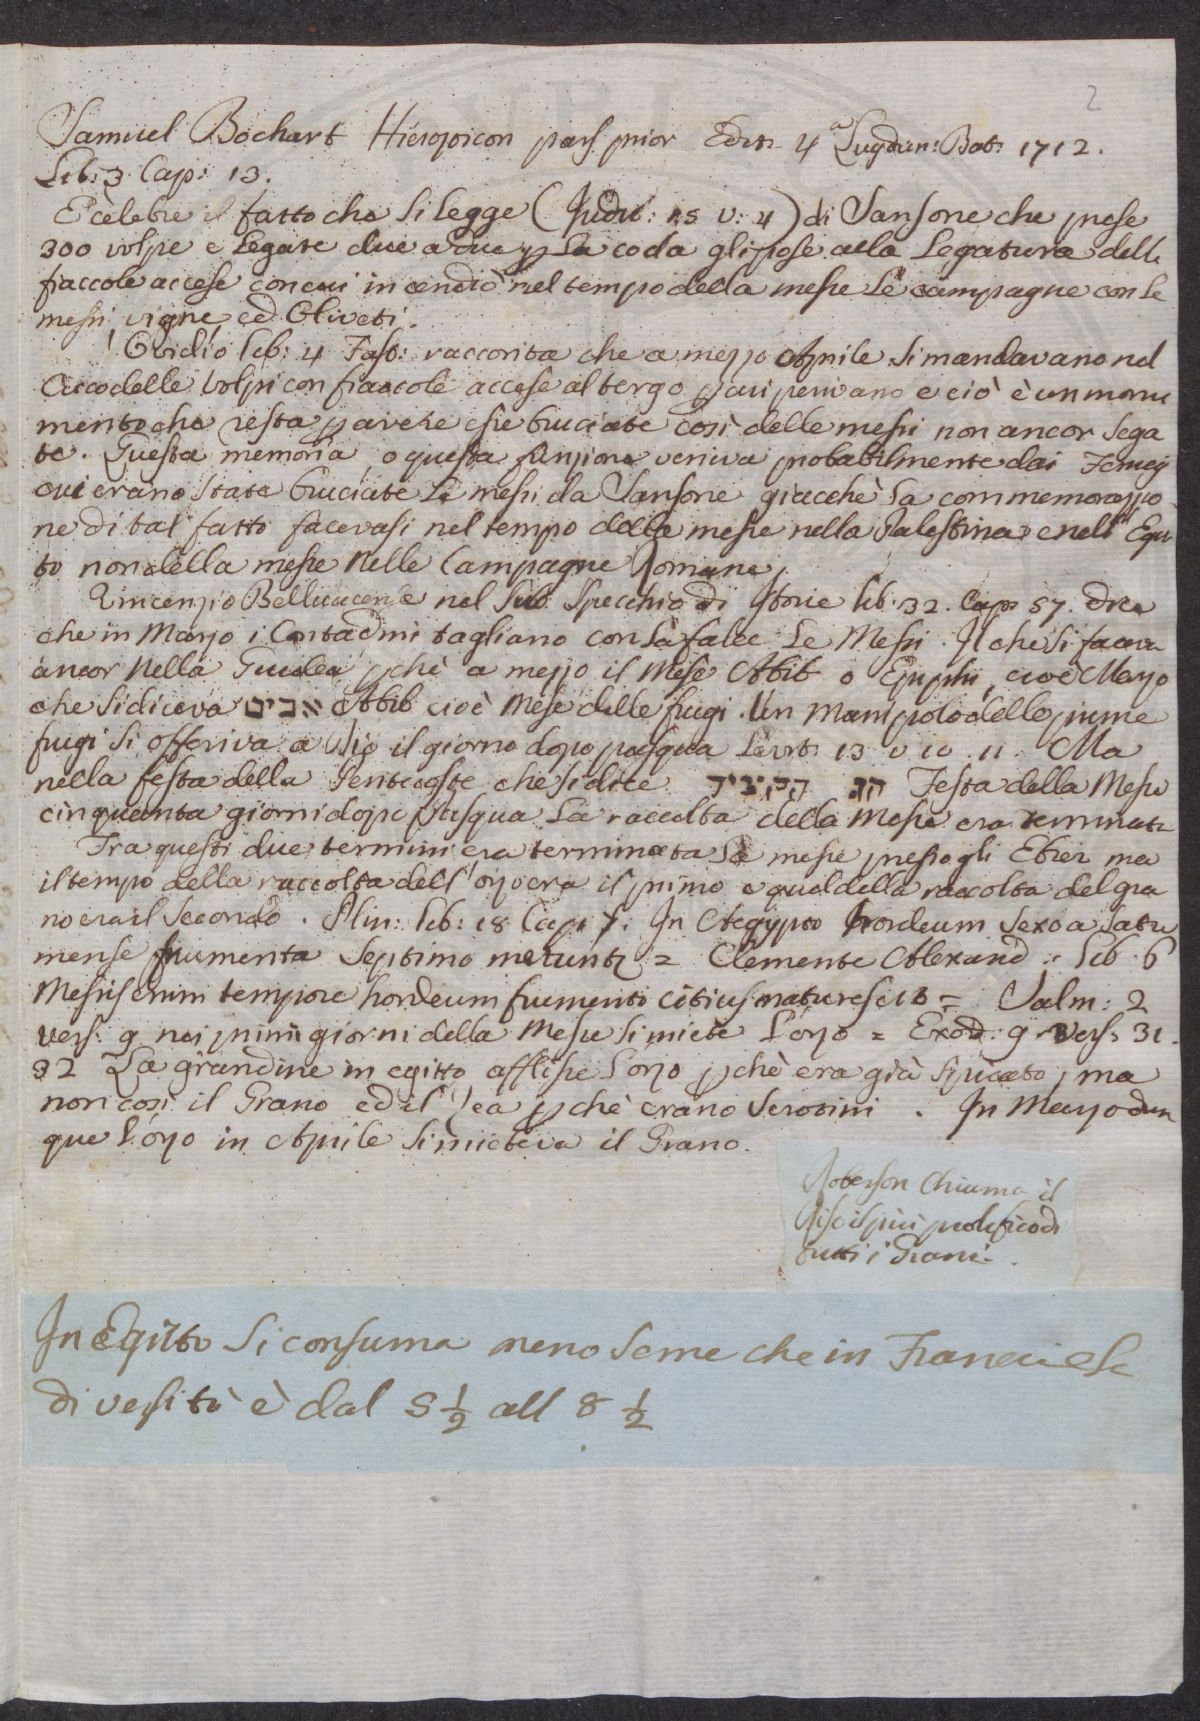 2
Samuel Bochart Hierozoicon pars prior Edit: 4a Lugdun: Bat: 1712.
Lib: 3 Cap: 13.
E cèlebre il fatto che si legge (Judic: 15 v: 4) di Sansone che prese
300 volpe e legate due a due p la coda gli pose alla legatura delle
fiaccole accese con cui incendiò nel tempo della messe le campagne con le
messi vigne ed Oliveti.
Ovidio lib: 4 Fast: racconta che a mezzo Aprile si mandavano nel
Circo delle Volpi con fiaccole accese al tergo p cui perivano e ciò è un monu
mento che resta p avere esse bruciate così delle messi non ancor sega
te. Questa memoria, o questa funzione veniva probabilmente dai Fenicj
cui erano state bruciate le messi da Sansone giacchè la commemorazio
ne di tal fatto facevasi nel tempo della messe nella Palestina e nell' Egit
to non della messe nelle Campagne Romane.
Vincenzio Belluacense nel suo Specchio di Storie lib: 32. Cap: 57. dice
che in Marzo i Contadini tagliano con la falce le Messi. Il che si faceva
ancor nella Giudea pchè a mezzo il Mese Abib o Epiphi, cioè Marzo
che si diceva אביב Abib cioè Mese delle frugi. Un manipolo delle prime
frugi si offeriva a Dio il giorno dopo pasqua Levit: 13 v 10. 11. Ma
nella festa della Pentecoste che si dice חג הקציר Festa della Messe
cinquanta giorni dopo Pasqua la raccolta della Messe era terminata
Fra questi due termini era terminata la messe presso gli Ebrei ma
il tempo della raccolta dell' orzo era il primo e quel della raccolta del gra
no era il secondo. Plin: lib: 18 Cap: 7: In Aegypto hordeum sexto a satu
mense frumenta septimo metuntr = Clemente Alexand: lib. 6
Messis enim tempore hordeum frumento citius maturescit = Salm: 2
vers: 9 nei primi giorni della Messe si miete l'orzo = Exod: 9 vers: 31.
32 La grandine in egitto afflisse l'orzo pchè era già spicato, ma
non così il Grano ed il Zea pchè erano Serotini. In Marzo dun
que l'orzo in Aprile si mieteva il Grano.
Roberson Chiama il
Riso il più prolifico di
tutti i Grani.
In Egitto si consuma meno seme che in Francia e la
diversità è dal 5 1/2 all 8 1/2